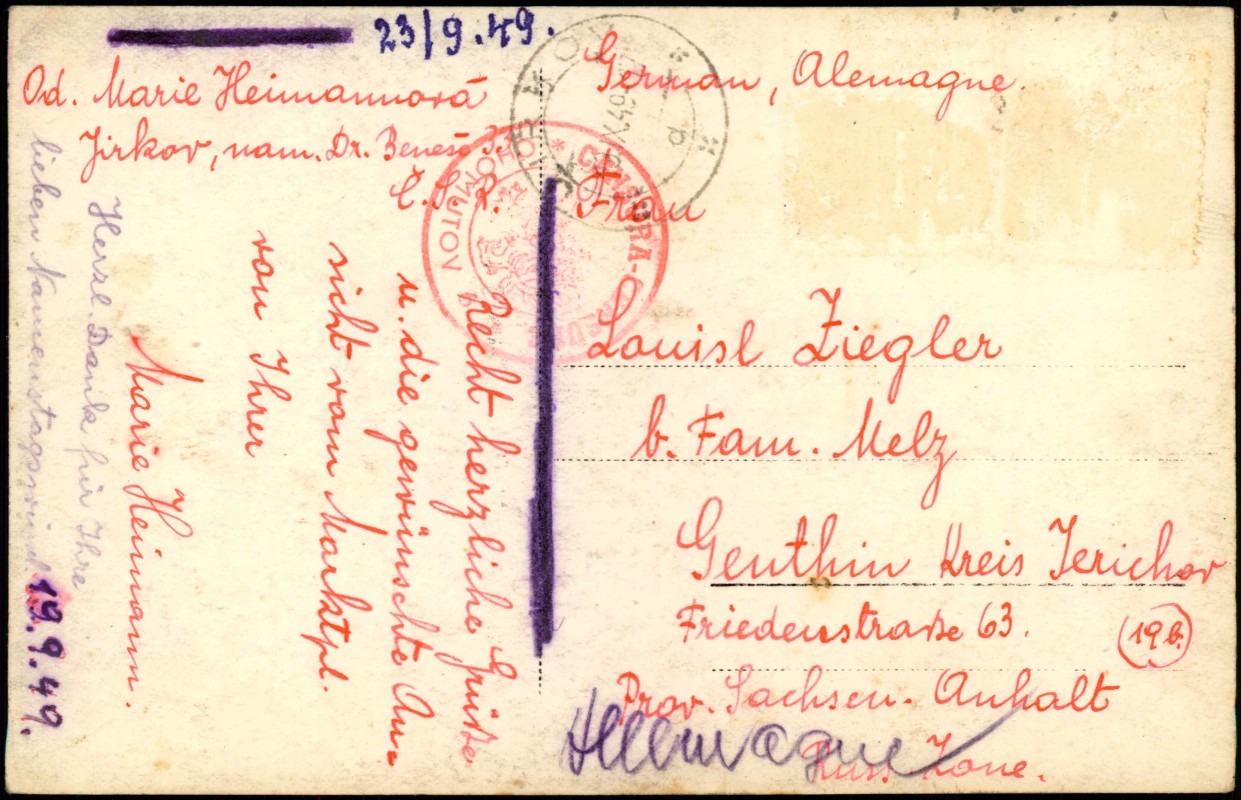 23/9.49.
Od. Marie Heimannová
Jirkov, nam. Dr. Beneše
Č.S.R.
Recht herzliche Grüße
u. die gewünschte An-
sicht vom Marktpl.
von Ihrer
Marie Heimann.
Herzl. Dank für Ihre
lieben Namenstagswünsche
19.9.49.
German, Alemagne.
Frau
Louisl Ziegler
b. Fam. Melz
Genthin Kreis Jerichov
Friedenstraße 63.
(19b.)
Prov. Sachsen-Anhalt
Russ Zone.
Allemagne
JIRKOV
CENSURA-CENSURE
CHOMUTOV